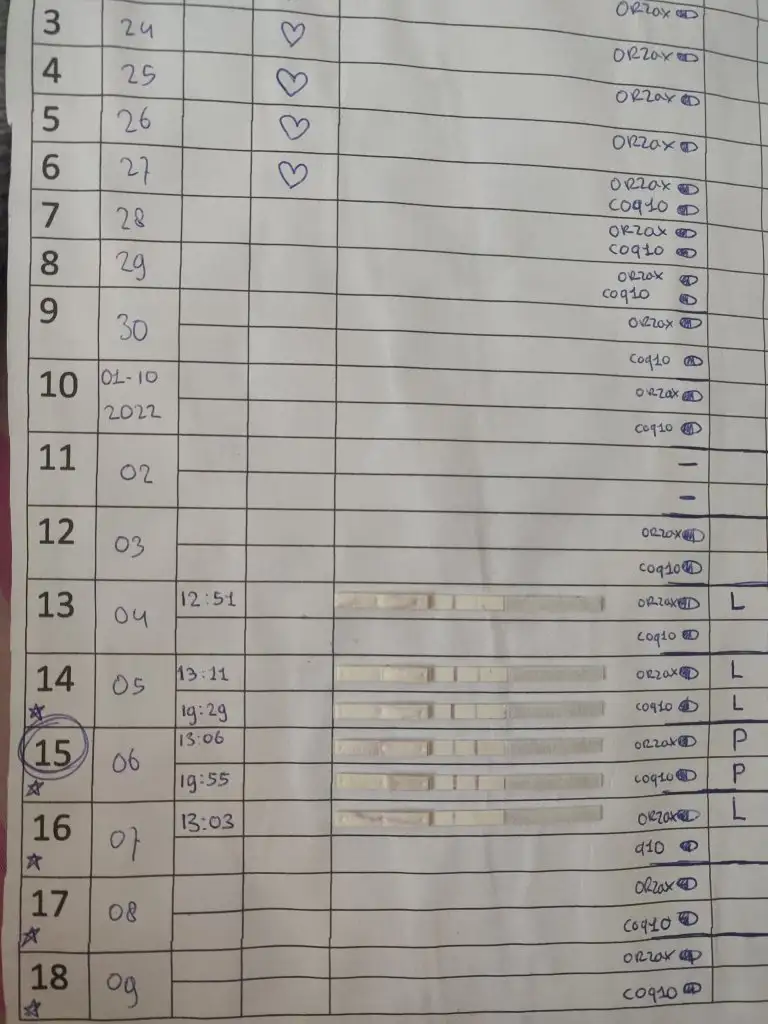 ORzax
3 24
ORzax
4 25
ORzax
5 26
ORzax
6 27
ORzax
COq10
7 28
ORzax
COq10
8 29
ORzax
COq10
9 30
ORzax
COq10
10 01-10
2022
ORzax
COq10
11 02 -
-
12 03
ORzax
COq10
13 04 12:51 ORzax L
COq10
14 05 13:11 ORzax L
19:29 COq10 L
15 06 13:06 ORzax P
19:55 COq10 P
16 07 13:03 ORzax L
q10
17 08 ORzax
COq10
18 09 ORzax
COq10